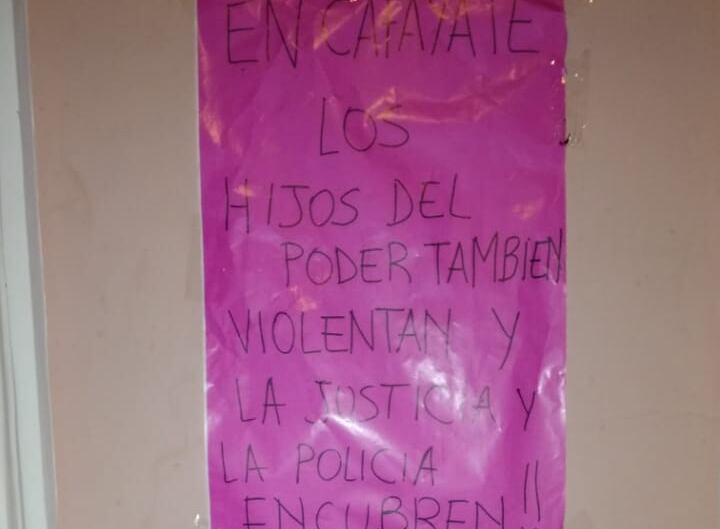 EN CAFAYATE
LOS
HIJOS DEL
PODER TAMBIEN
VIOLENTAN Y
LA JUSTICIA Y
LA POLICIA
ENCUBREN!!